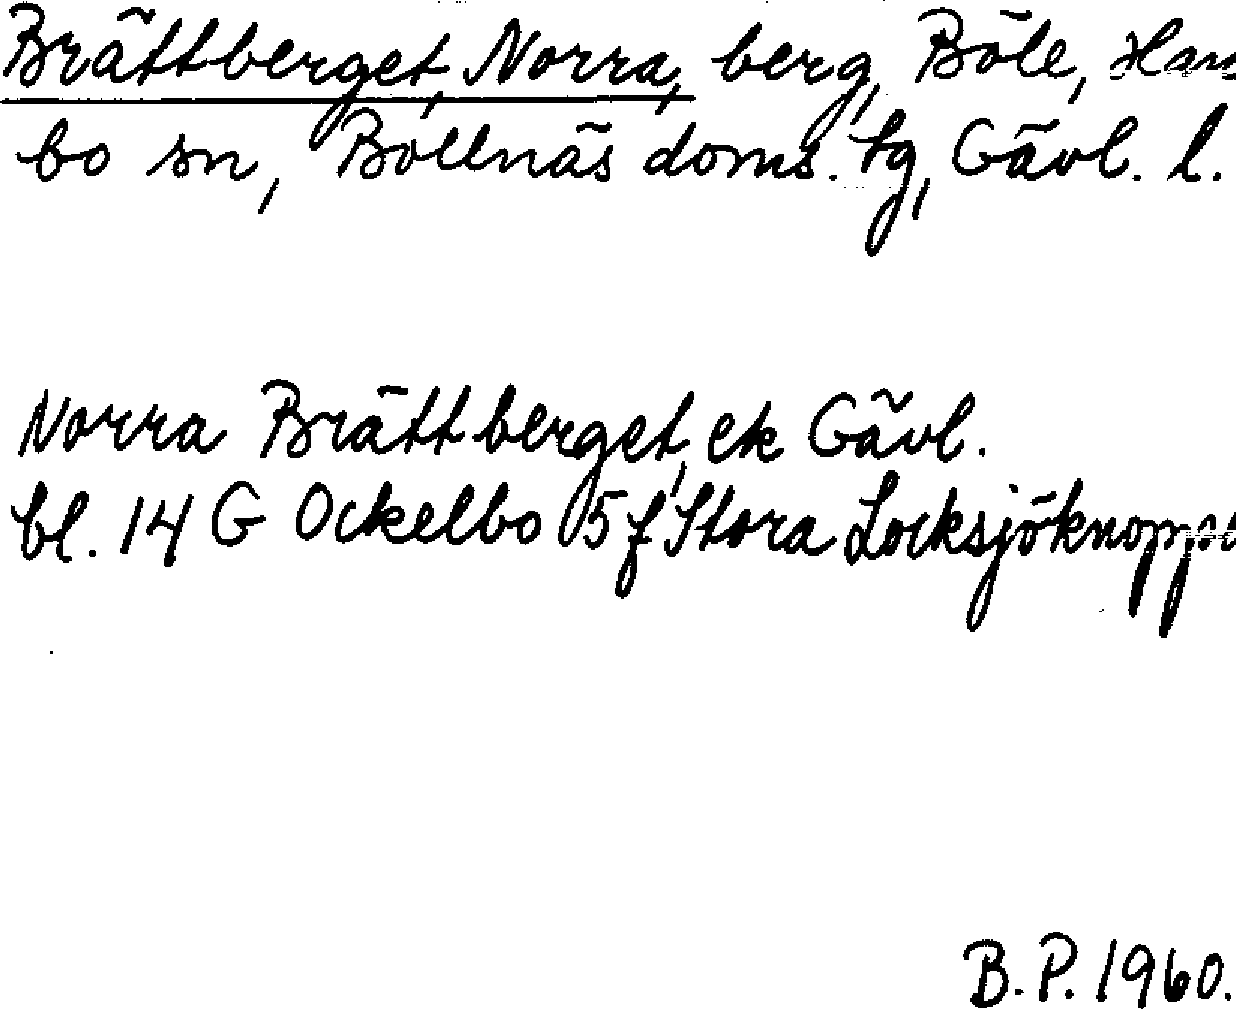 Brättberget, Norra, berg, Böle, Han
bo sn, Bollnäs doms. tg, Gävl. l.
Norra Brättberget, ek Gävl.
bl. 14 G Ockelbo 5 f Stora Locksjöknoppen
B. P. 1960.